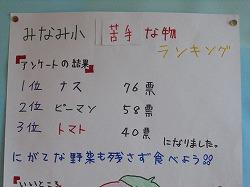 みなみ小 苦手な物
ランキング
『アンケートの結果』
1位 ナス 76票
2位 ピーマン 58票
3位 トマト 40票
になりました。
にがてな野菜も残さず食べよう
いいところ